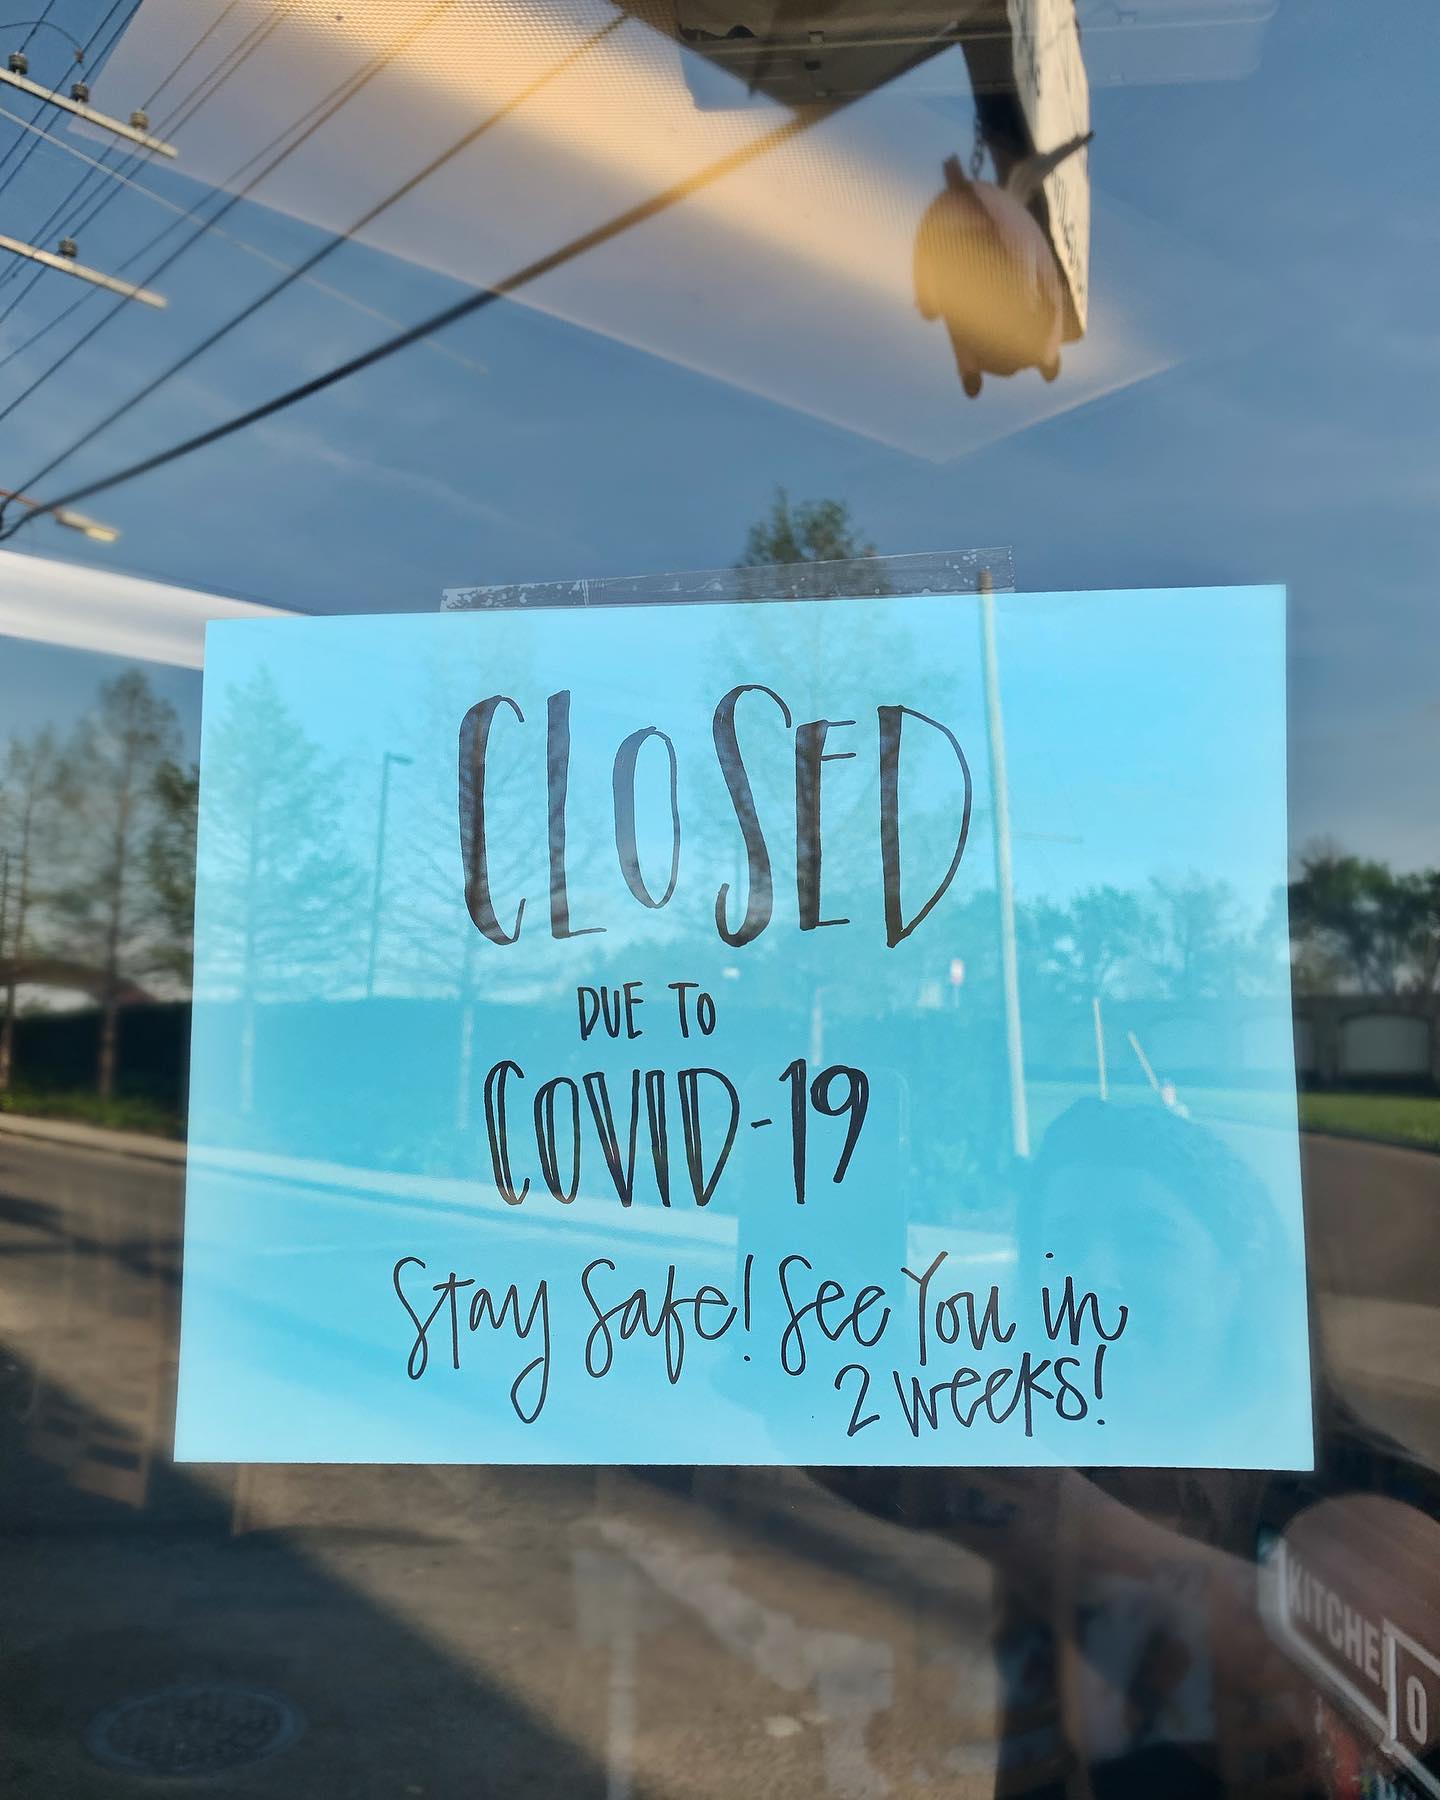 CLOSED
DUE TO
COVID-19
Stay Safe! See You in
2 weeks!
KITCHEN